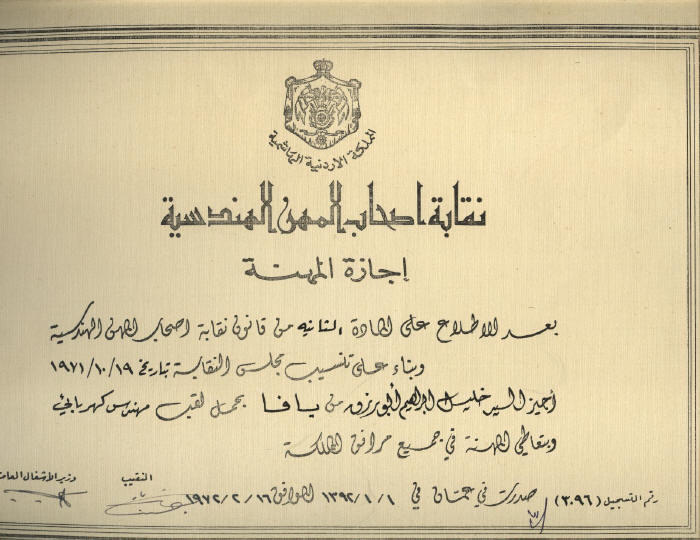 المملكة الاردنية الهاشمية
نقابة اصحاب المهن الهندسية
إجازة المهنة
بعد الاطلاع على المادة الثانيه من قانون نقابة اصحاب المهن الهندسية
وبناء على تنسيب مجلس النقابة بتاريخ ١٩٧١/١٠/١٩
أجيز السيد خليل ابراهيم أبورزق من يافا بحمل لقب مهندس كهربائي
وبتعاطي المهنة في جميع مرافق المملكة
رقم التسجيل (٣٠٩٦) صدرت في عمان في ١٣٩٢/١/١ الموافق ١٩٧٢/٢/١٦
النقيب
وزير الاشغال العامة